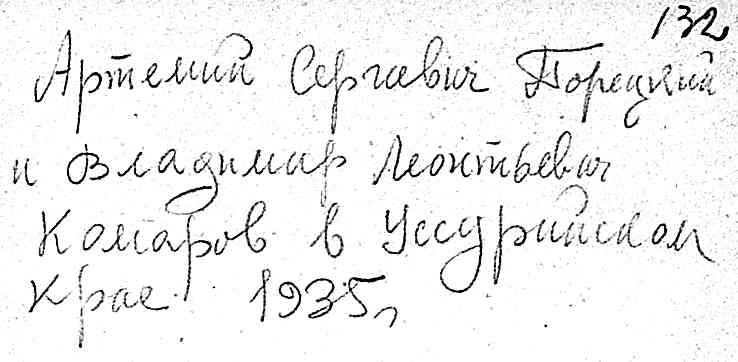 132
Артемий Сергеевич Порецкий
и Владимир Леонтьевич
Комаров в Уссурийском
крае 1935 г.